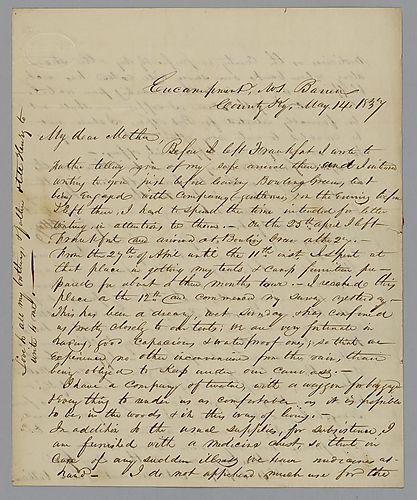 Encampment, No 1. Barren
County Ky. May 14. 1837
My dear Mother,
Before I left Frankfort I wrote to
father telling you of my safe arrival there, and I intended
writing to you just before leaving Bowling Green, but
being engaged with company (gentlemen) on the evening before
I left there, I had to spend the time intended for letter
writing in attentions to them. — On the 25th april I left
Frankfort and arrived at Bowling Green on the 27. —
From the 27th of April until the 11th inst I spent at
that place in getting my tents & camp furniture pre-
pared for about a months tour. — I reached this
place on the 12th and commenced my survey yesterday —
This has been a dreary, wet Sunday & has confined
us pretty closely to our tents; We are very fortunate in
having good capacious & water proof ones; so that we
experience no other inconvenience from the rain, than
being obliged to keep under our canvass. —
I have a company of twelve, with a waggon for baggage
& every thing to render us as comfortable as it is possible
to be, in the woods & in this way of living. —
In addition to the usual supplies, for subsistence, I
am furnished with a medicine chest, so that in
case of any sudden illness, we have medicine at
hand — I do not apprehend much use for the
Love to all my brothers & sisters & tell Henry to
write to me. —